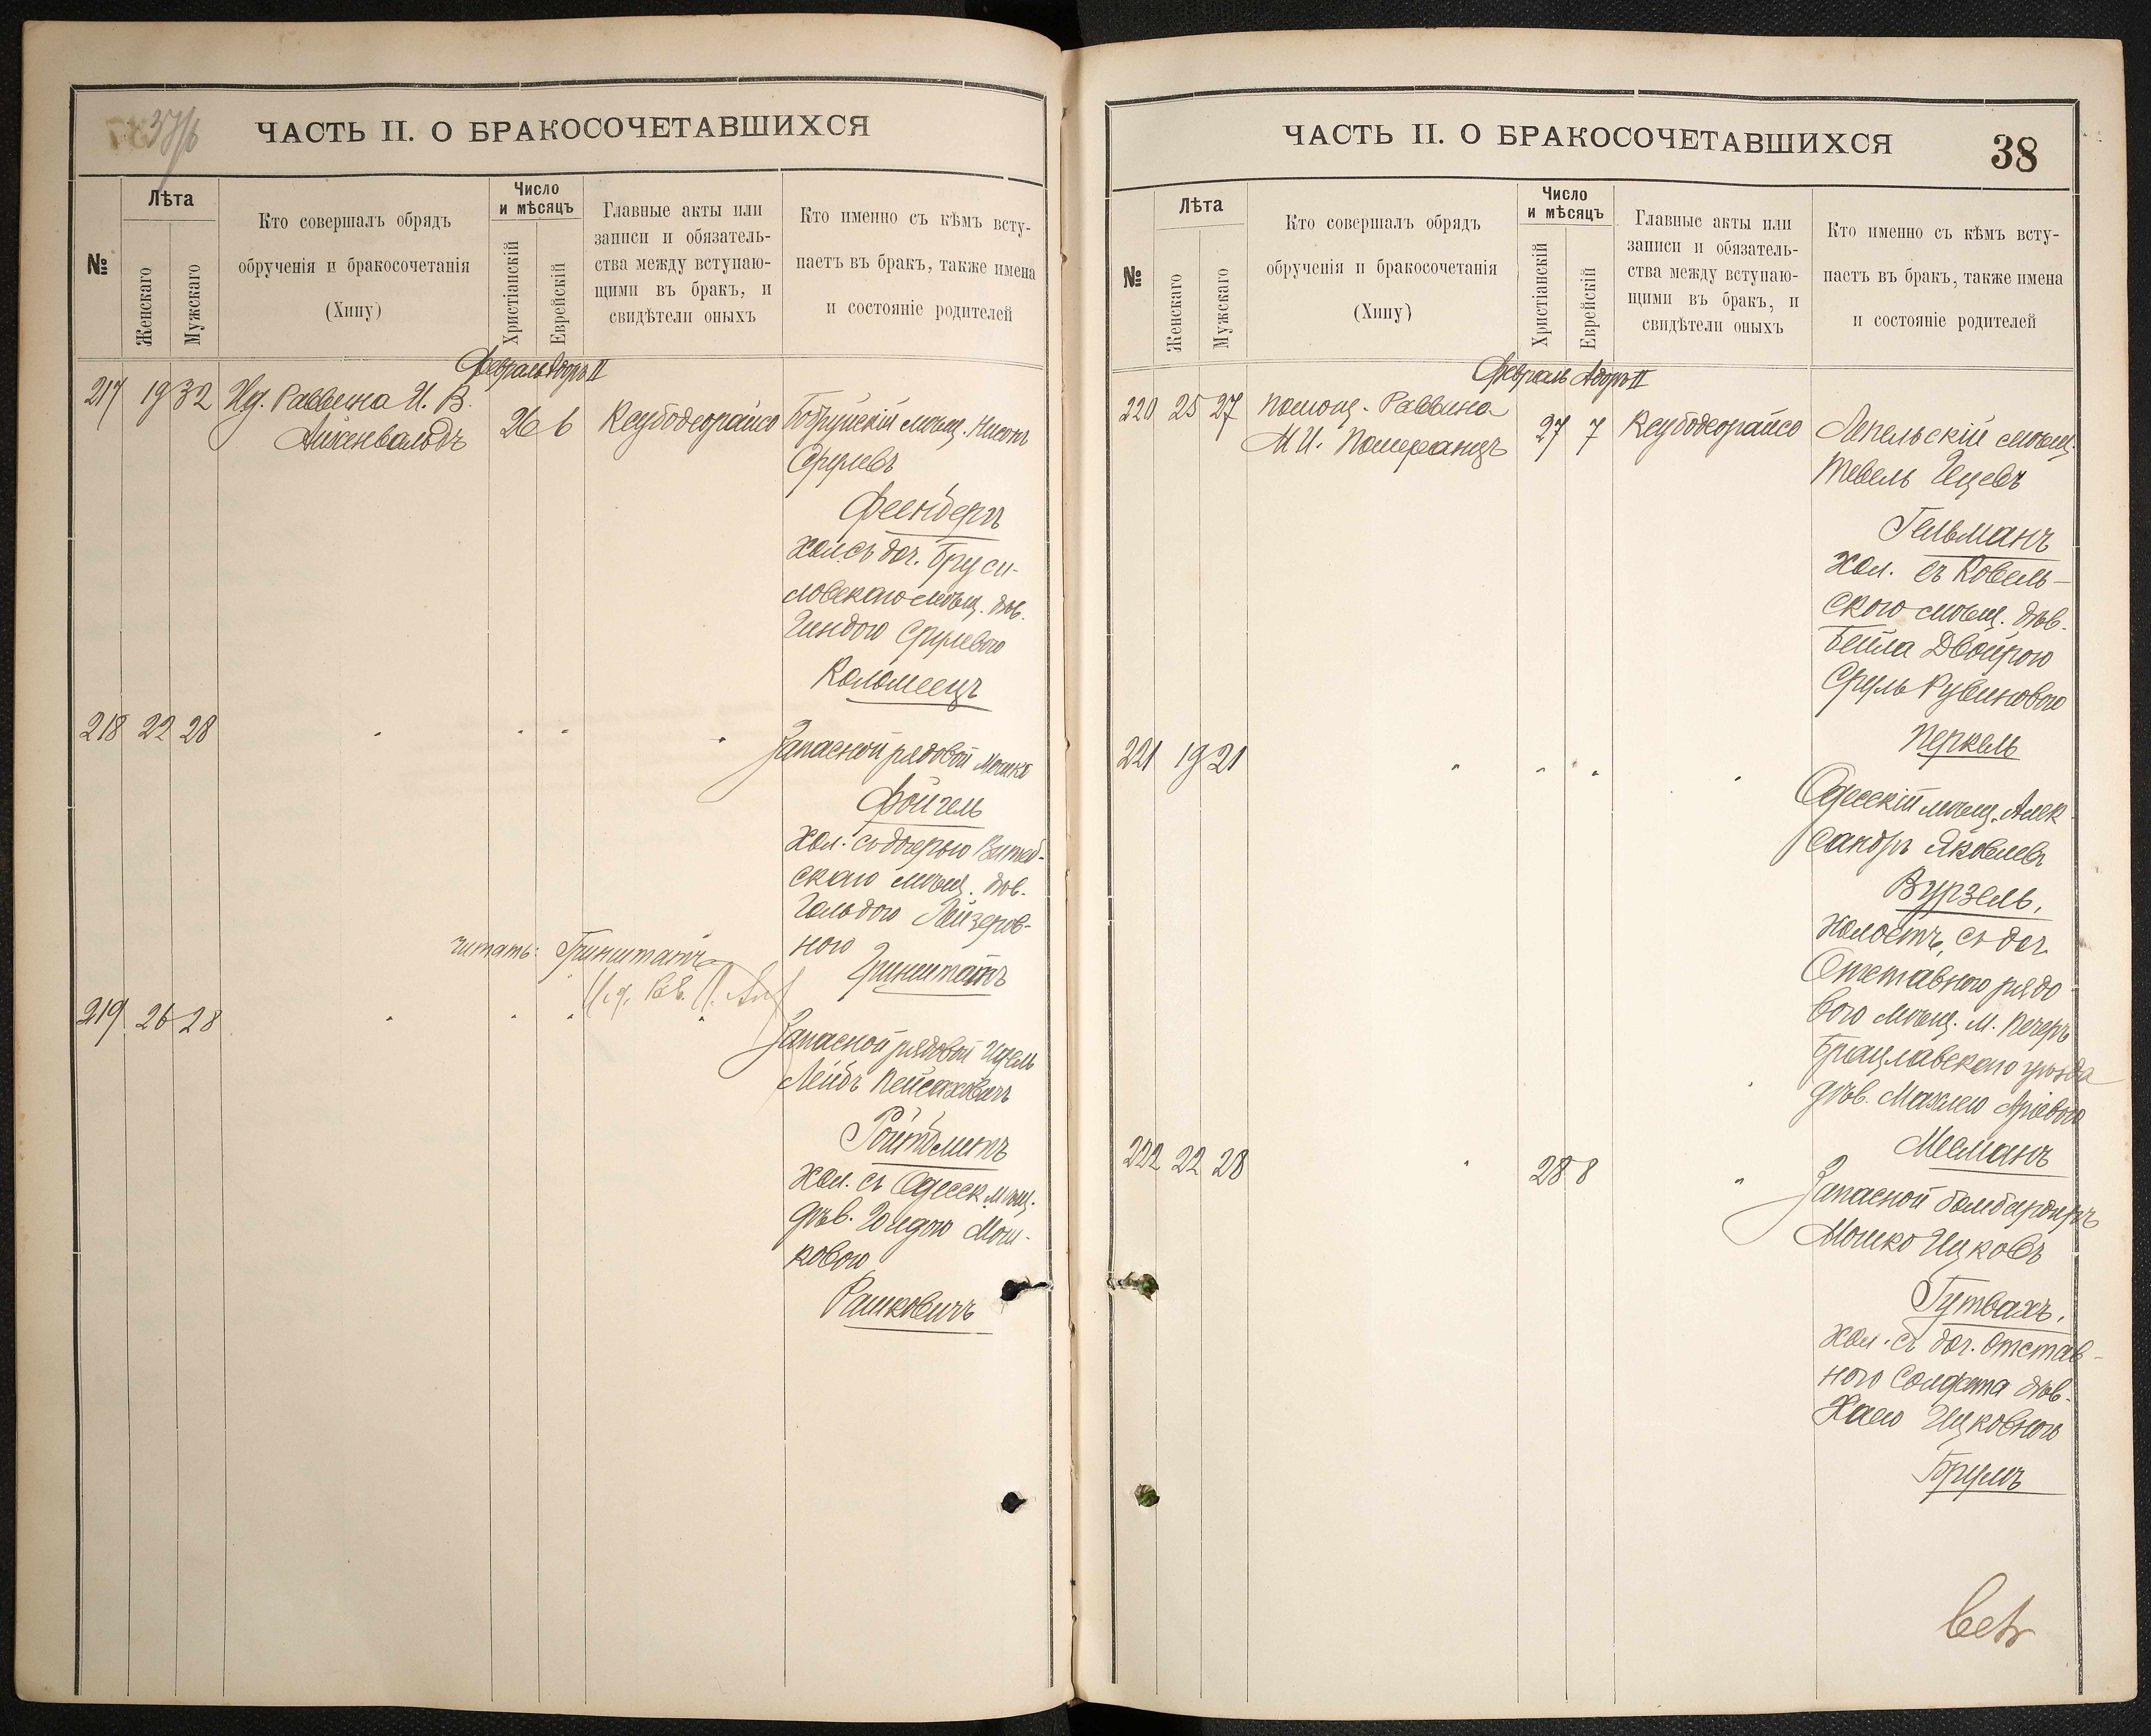 37/б
ЧАСТЬ II. О БРАКОСОЧЕТАВШИХСЯ
№
Лѣта
Женскаго
Мужскаго
Кто совершалъ обрядъ
обрученія и бракосочетанія
(Хипу)
Число
и мѣсяцъ
Христіанскій
Еврейскій
Главные акты или
записи и обязатель-
ства между вступаю-
щими въ бракъ, и
свидѣтели оныхъ
Кто именно съ кѣмъ всту-
паетъ въ бракъ, также имена
и состояніе родителей
Февраль Адоръ II
217 19 32 Ид. Раввина И. В.
Айхенвальдъ
26 6 Ксубодеорайсо
Бобруйскій мѣщ. Нисонъ
Срулевъ
Фейнбергъ
хол. съ доч. Бруси-
ловскаго мѣщ. дѣв.
Гиндою Срулевою
Коломеецъ
218 22 28
Запасной рядовой Мошко
Фойгель
Хол. съ дочерью Витеб-
скаго мѣщ. дѣв.
Гольдою Лейзеров-
ною
Гринштатъ
читать: Гринштатъ
219 26 28
Запасной рядовой Идель
Лейбъ Пейсаховичъ
Ройтблитъ
Хол. съ Одесск. мѣщ.
дѣв. Гоидою Мош-
ковою
Рашковичъ
ЧАСТЬ II. О БРАКОСОЧЕТАВШИХСЯ
38
№
Лѣта
Женскаго
Мужскаго
Кто совершалъ обрядъ
обрученія и бракосочетанія
(Хипу)
Число
и мѣсяцъ
Христіанскій
Еврейскій
Главные акты или
записи и обязатель-
ства между вступаю-
щими въ бракъ, и
свидѣтели оныхъ
Кто именно съ кѣмъ всту-
паетъ въ бракъ, также имена
и состояніе родителей
Февраль Адоръ II
220 25 27 Помощ. Раввина
М. И. Померанцъ
27 7 Ксубодеорайсо
Лепельскій мѣщ.
Тевель Ицевъ
Гельманъ
хол. съ Ковель-
скою мѣщ. дѣв.
Бейла Двойрою
Сруль Рувиновою
Перкель
221 19 21
Одесскій мѣщ. Алек
сандръ Яковлевъ
Вурзель,
холостъ, съ доч.
Отставного рядо
вого мѣщ. м. Печеръ
Брацлавскаго уѣзда
дѣв. Махлею Аріевою
Месманъ
222 22 28
28 8
Запасной бомбардиръ
Мошко Ицковъ
Гутвахъ,
хол. съ доч. отстав-
ного солдата дѣв.
Хаею Ицковною
Брумъ